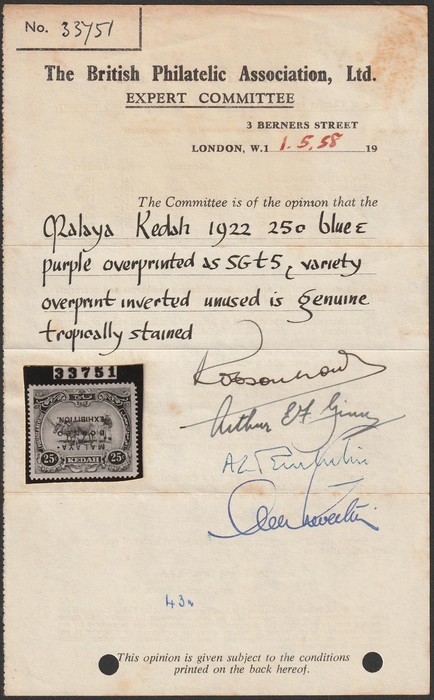 No. 33751
The British Philatelic Association, Ltd.
EXPERT COMMITTEE
3 BERNERS STREET
LONDON, W.1 1.5.58 19
The Committee is of the opinion that the
Malaya Kedah 1922 25c blue &
purple overprinted as SG t5, variety
overprint inverted unused is genuine
tropically stained
33751
MALAYA-
BORNEO
EXHIBITION.
25c KEDAH 25c
Arthur
43
This opinion is given subject to the conditions
printed on the back hereof.